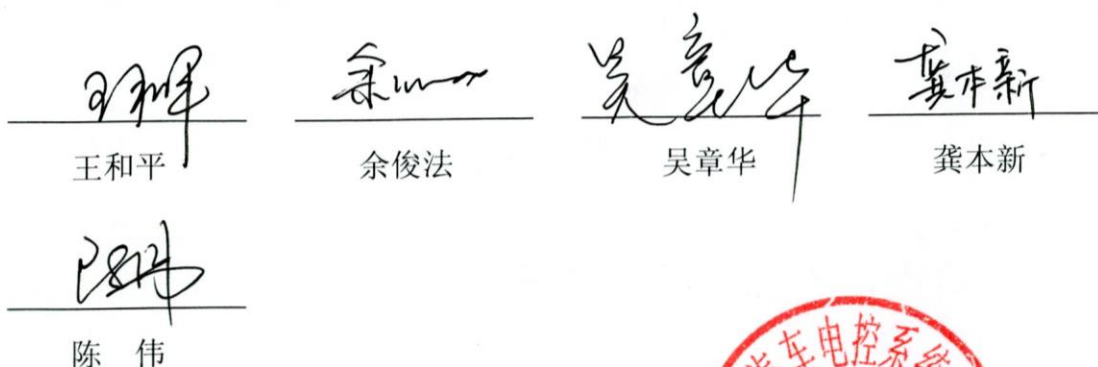 王和平 余俊法 吴章华 龚本新
陈 伟
汽车电控系统